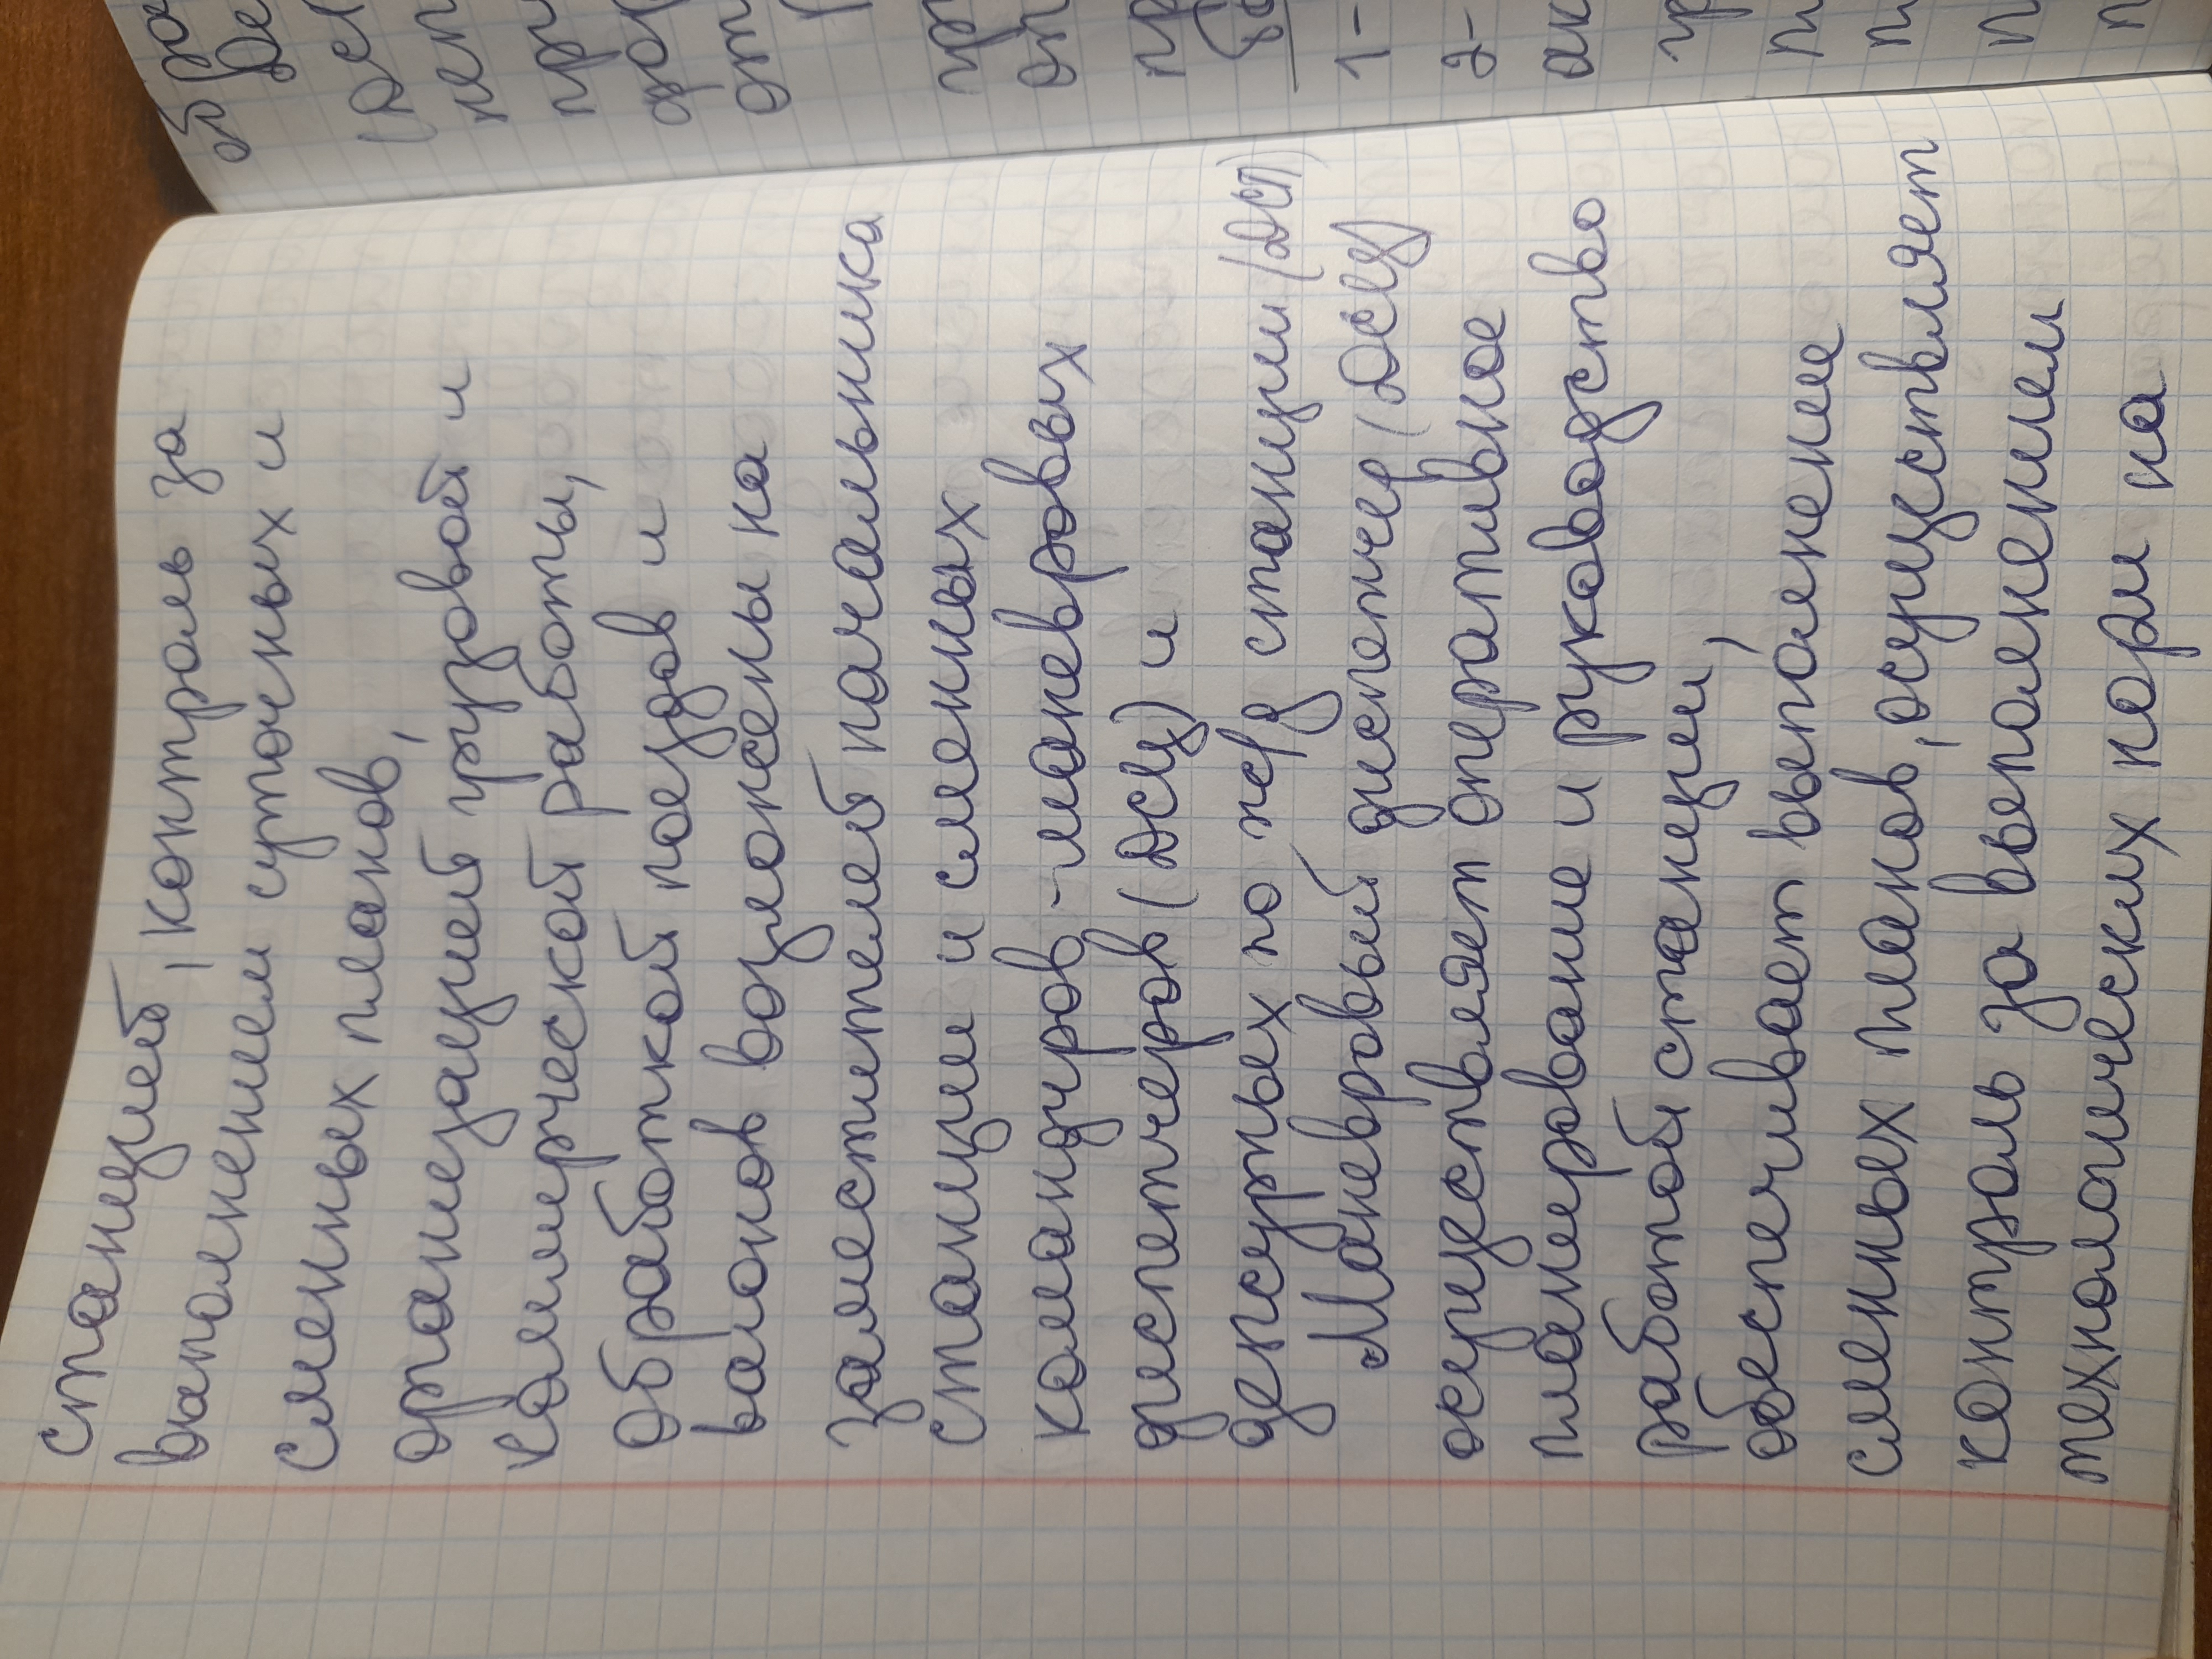 станцией, контроль за
выполнением суточных и
сменных планов,
организацией грузовой и
коммерческой работы,
обработкой поездов и
вагонов возложены на
заместителей начальника
станции и сменных
командиров - маневровых
диспетчеров (ДСЦ) и
дежурных по жед станции (ДСП)
Маневровый диспетчер (ДСЦ)
осуществляет оперативное
планирование и руководство
работой станции,
обеспечивает выполнение
сменных планов, осуществляет
контроль за выполнением
технологических норм на